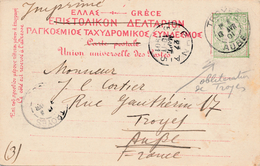 Imprimé
ΕΛΛΑΣ GRÈCE
ΕΠΙΣΤΟΛΙΚΟΝ ΔΕΛΤΑΡΙΟΝ
ΠΑΓΚΟΣΜΙΟΣ ΤΑΧΥΔΡΟΜΙΚΟΣ ΣΥΝΔΕΣΜΟΣ
Carte postale
Union universelle des
AUBE
obliteration
de
Troyes
Monsieur
J. Cortier
Rue Gauthérin 17
Troyes
Aube
France
(3)